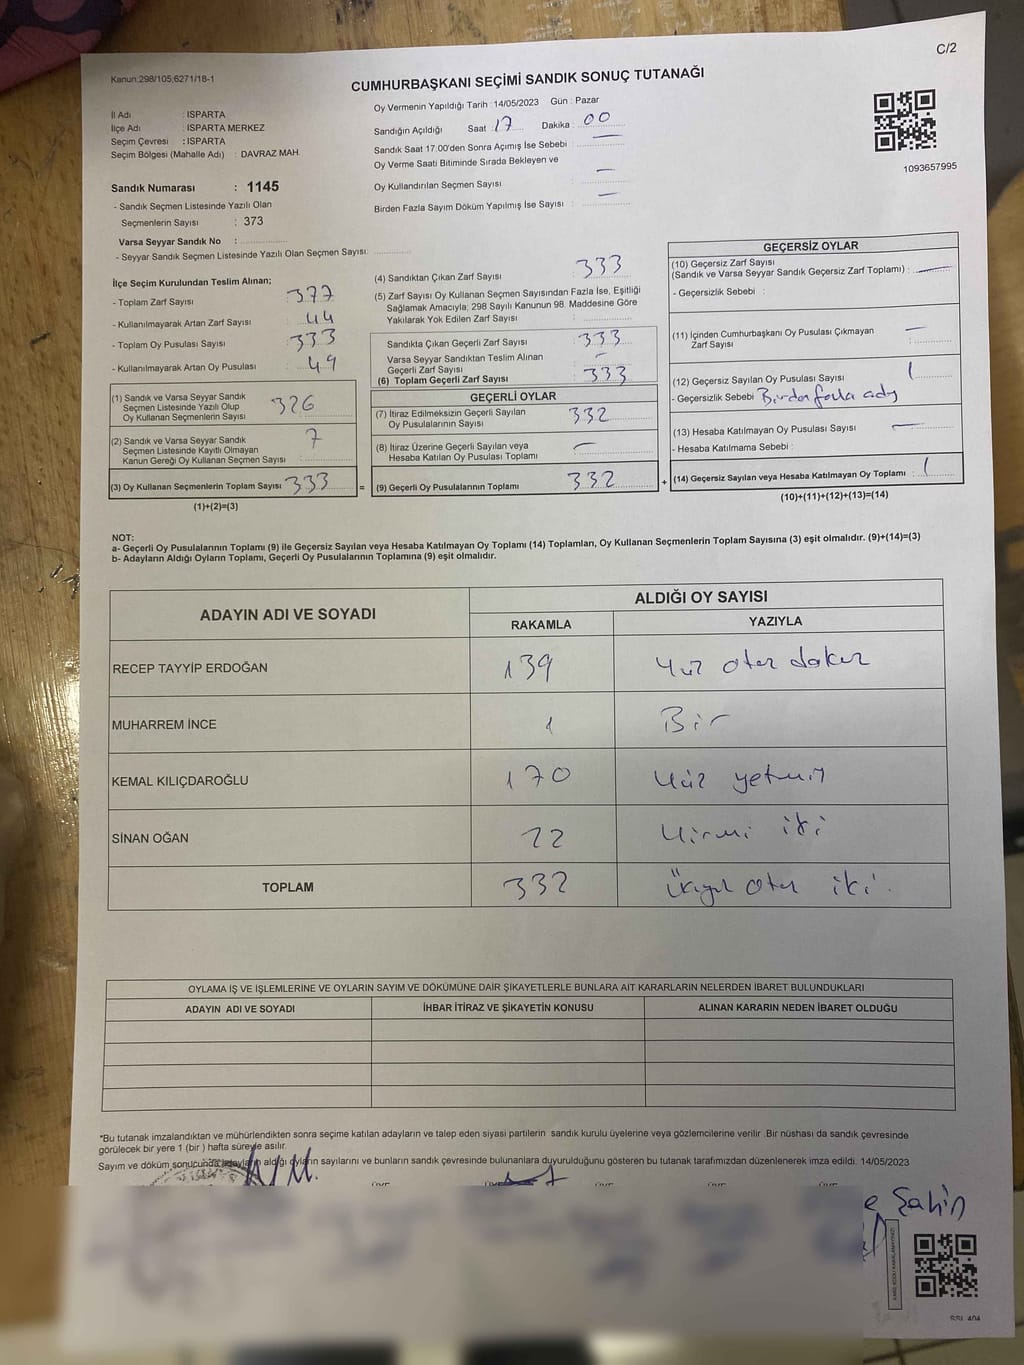 C/2
Kanun:298/105;6271/18-1
CUMHURBAŞKANI SEÇİMİ SANDIK SONUÇ TUTANAĞI
İl Adı : ISPARTA
İlçe Adı : ISPARTA MERKEZ
Seçim Çevresi : ISPARTA
Seçim Bölgesi (Mahalle Adı) : DAVRAZ MAH.
Sandık Numarası : 1145
- Sandık Seçmen Listesinde Yazılı Olan
Seçmenlerin Sayısı : 373
Varsa Seyyar Sandık No :
- Seyyar Sandık Seçmen Listesinde Yazılı Olan Seçmen Sayısı:
Oy Vermenin Yapıldığı Tarih : 14/05/2023 Gün : Pazar
Sandığın Açıldığı Saat : 17 Dakika : 00
Sandık Saat 17:00'den Sonra Açımış İse Sebebi : —
Oy Verme Saati Bitiminde Sırada Bekleyen ve
Oy Kullandırılan Seçmen Sayısı : —
Birden Fazla Sayım Döküm Yapılmış İse Sayısı : —
1093657995
İlçe Seçim Kurulundan Teslim Alınan;
- Toplam Zarf Sayısı : 377
- Kullanılmayarak Artan Zarf Sayısı : 44
- Toplam Oy Pusulası Sayısı : 333
- Kullanılmayarak Artan Oy Pusulası : 49
(1) Sandık ve Varsa Seyyar Sandık
Seçmen Listesinde Yazılı Olup
Oy Kullanan Seçmenlerin Sayısı : 326
(2) Sandık ve Varsa Seyyar Sandık
Seçmen Listesinde Kayıtlı Olmayan
Kanun Gereği Oy Kullanan Seçmen Sayısı : 7
(3) Oy Kullanan Seçmenlerin Toplam Sayısı : 333
(1)+(2)=(3)
=
(4) Sandıktan Çıkan Zarf Sayısı : 333
(5) Zarf Sayısı Oy Kullanan Seçmen Sayısından Fazla İse, Eşitliği
Sağlamak Amacıyla; 298 Sayılı Kanunun 98. Maddesine Göre
Yakılarak Yok Edilen Zarf Sayısı :
Sandıkta Çıkan Geçerli Zarf Sayısı : 333
Varsa Seyyar Sandıktan Teslim Alınan
Geçerli Zarf Sayısı : —
(6) Toplam Geçerli Zarf Sayısı : 333
GEÇERLİ OYLAR
(7) İtiraz Edilmeksizin Geçerli Sayılan
Oy Pusulalarının Sayısı : 332
(8) İtiraz Üzerine Geçerli Sayılan veya
Hesaba Katılan Oy Pusulası Toplamı : —
(9) Geçerli Oy Pusulalarının Toplamı : 332
+
GEÇERSİZ OYLAR
(10) Geçersiz Zarf Sayısı
(Sandık ve Varsa Seyyar Sandık Geçersiz Zarf Toplamı) : —
- Geçersizlik Sebebi :
(11) İçinden Cumhurbaşkanı Oy Pusulası Çıkmayan
Zarf Sayısı : —
(12) Geçersiz Sayılan Oy Pusulası Sayısı : 1
- Geçersizlik Sebebi : Birden fazla aday
(13) Hesaba Katılmayan Oy Pusulası Sayısı : —
- Hesaba Katılmama Sebebi :
(14) Geçersiz Sayılan veya Hesaba Katılmayan Oy Toplamı : 1
(10)+(11)+(12)+(13)=(14)
NOT:
a- Geçerli Oy Pusulalarının Toplamı (9) ile Geçersiz Sayılan veya Hesaba Katılmayan Oy Toplamı (14) Toplamları, Oy Kullanan Seçmenlerin Toplam Sayısına (3) eşit olmalıdır. (9)+(14)=(3)
b- Adayların Aldığı Oyların Toplamı, Geçerli Oy Pusulalarının Toplamına (9) eşit olmalıdır.
ADAYIN ADI VE SOYADI
ALDIĞI OY SAYISI
RAKAMLA YAZIYLA
RECEP TAYYİP ERDOĞAN 139 Yüz otuz dokuz
MUHARREM İNCE 1 Bir
KEMAL KILIÇDAROĞLU 170 Yüz yetmiş
SİNAN OĞAN 22 Yirmi iki
TOPLAM 332 Üçyüz otuz iki.
OYLAMA İŞ VE İŞLEMLERİNE VE OYLARIN SAYIM VE DÖKÜMÜNE DAİR ŞİKAYETLERLE BUNLARA AİT KARARLARIN NELERDEN İBARET BULUNDUKLARI
ADAYIN ADI VE SOYADI İHBAR İTİRAZ VE ŞİKAYETİN KONUSU ALINAN KARARIN NEDEN İBARET OLDUĞU
*Bu tutanak imzalandıktan ve mühürlendikten sonra seçime katılan adayların ve talep eden siyasi partilerin sandık kurulu üyelerine veya gözlemcilerine verilir .Bir nüshası da sandık çevresinde
görülecek bir yere 1 (bir ) hafta süreyle asılır.
Sayım ve döküm sonucunda adayların aldığı oyların sayılarını ve bunların sandık çevresinde bulunanlara duyurulduğunu gösteren bu tutanak tarafımızdan düzenlenerek imza edildi. 14/05/2023
e Şahin